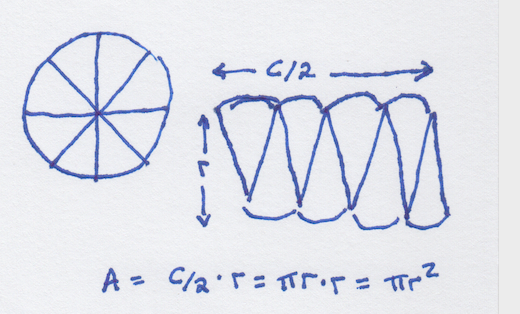 C/2
r
A = C/2 · r = πr · r = πr²